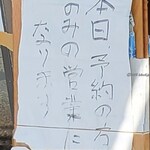 本日、予約の方
のみの営業に
なります